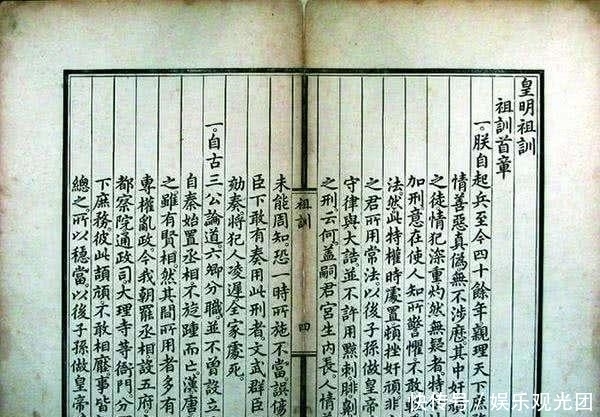 皇明祖訓
祖訓首章
一。朕自起兵至今四十餘年。親理天下庶
情善惡真偽無不涉歷。其中奸
之徒情犯深重灼然無疑者。特
加刑意在使人知所警懼不敢
法然此特權時處置頓挫奸頑非
之君所用常法。以後子孫做皇帝
守律與大誥並不許用黥刺腓劓
之刑云何。蓋嗣君宮生內長人情
祖訓
四
未能周知。恐一時所施不當誤傷
臣下敢有奏用此刑者。文武群臣
劾奏將犯人凌遲全家處死。
一。自古三公論道。六卿分職。並不曾設立
自秦始置丞相不旋踵而亡。漢唐
之雖有賢相然其間所用者多有
專權亂政。今我朝罷丞相設五府
都察院通政司大理寺等衙門。分
下庶務。彼此頡頏不敢相壓。事皆
總之。所以穩當。以後子孫做皇帝
快传号/娱乐观光团